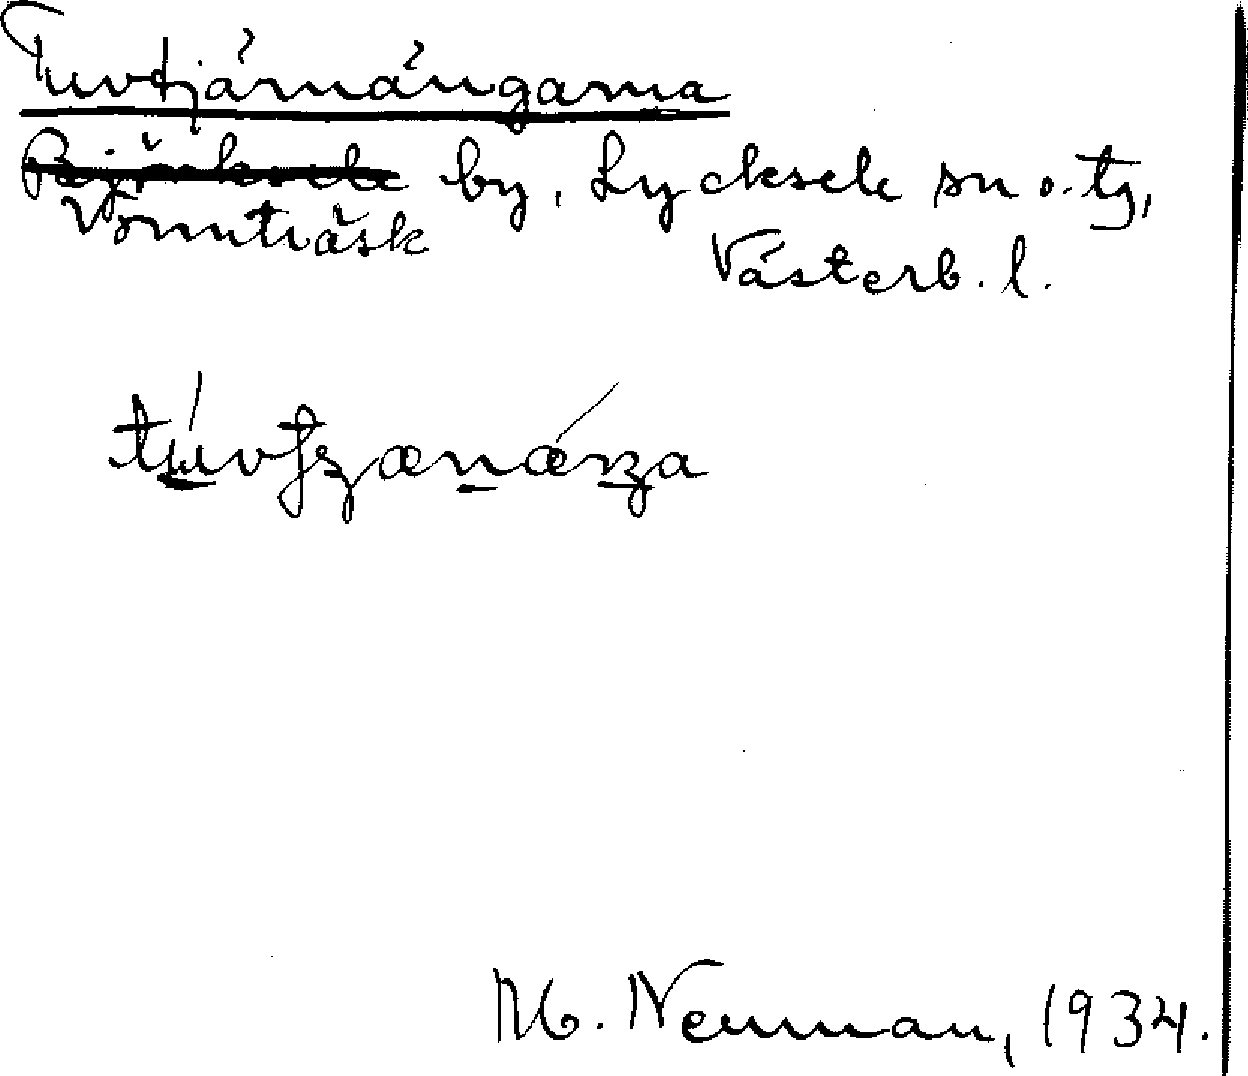 Tuvtjärnängarna
Björksele by, Lycksele sn o. tg,
Vormträsk
Västerb. l.
M. Neuman, 1934.